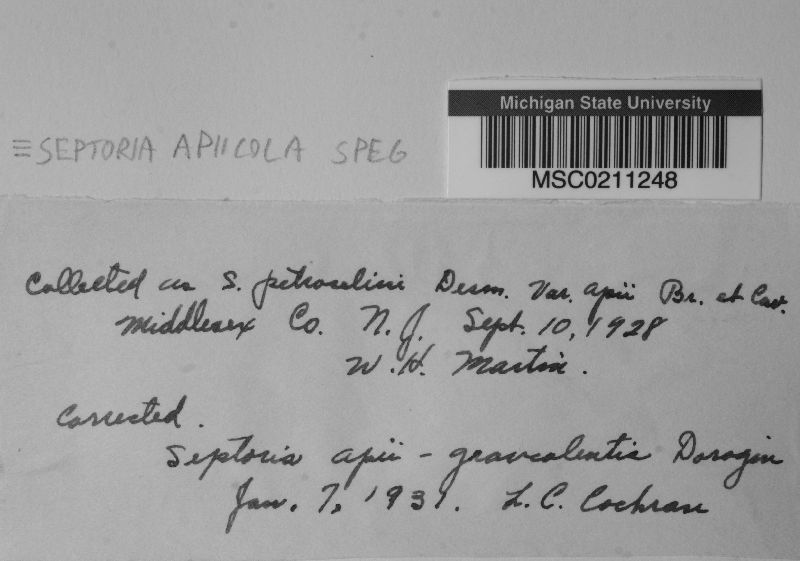 Michigan State University
MSC0211248
≡ SEPTORIA APIICOLA SPEG
Collected as S. petroselini Desm. Var. apii Br. et Cav.
Middlesex Co. N.J. Sept. 10, 1928
W.H. Martin.
Corrected.
Septoria apii - graveolentis Dorogin
Jan. 7, 1931. L.C. Cochran